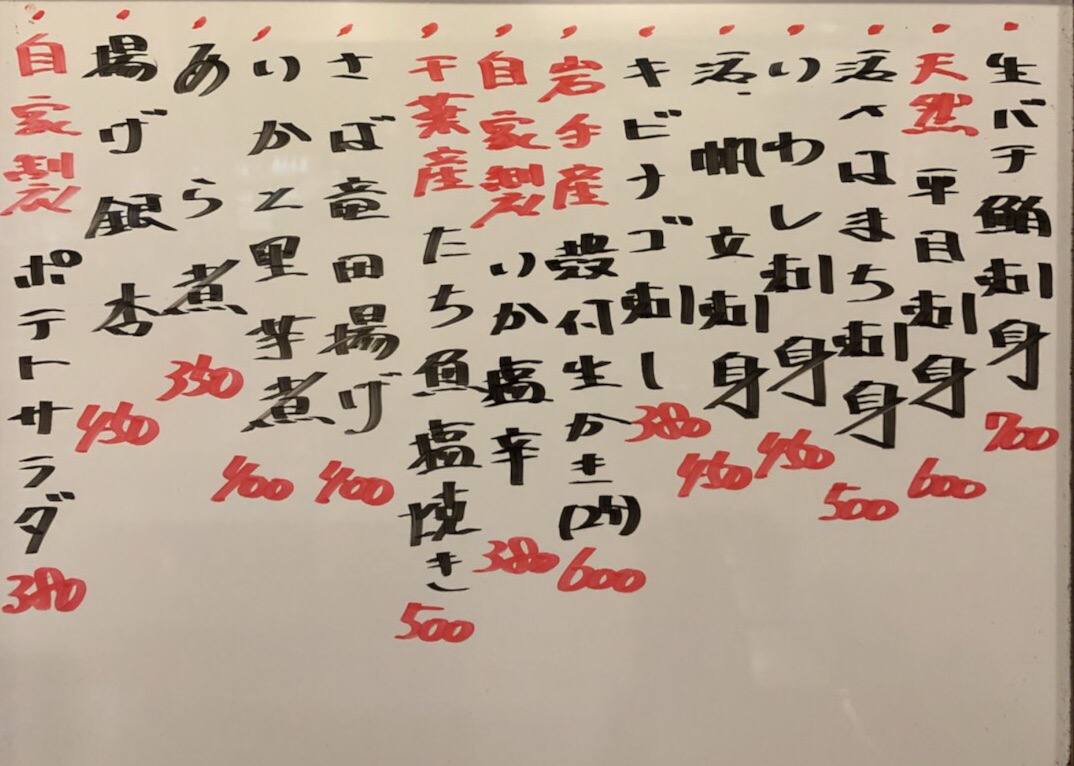 生バチ鮪刺身 700
天然 平目刺身 600
活〆はまち刺身 500
いわし刺身 450
活帆立刺身 450
キビナゴ刺し 380
岩手産 殻付生かき(2ヶ) 600
自家製 いか塩辛 380
千葉産 たち魚塩焼き 500
さば竜田揚げ 400
いかと里芋煮 400
あら煮 350
揚げ銀杏 450
自家製 ポテトサラダ 380